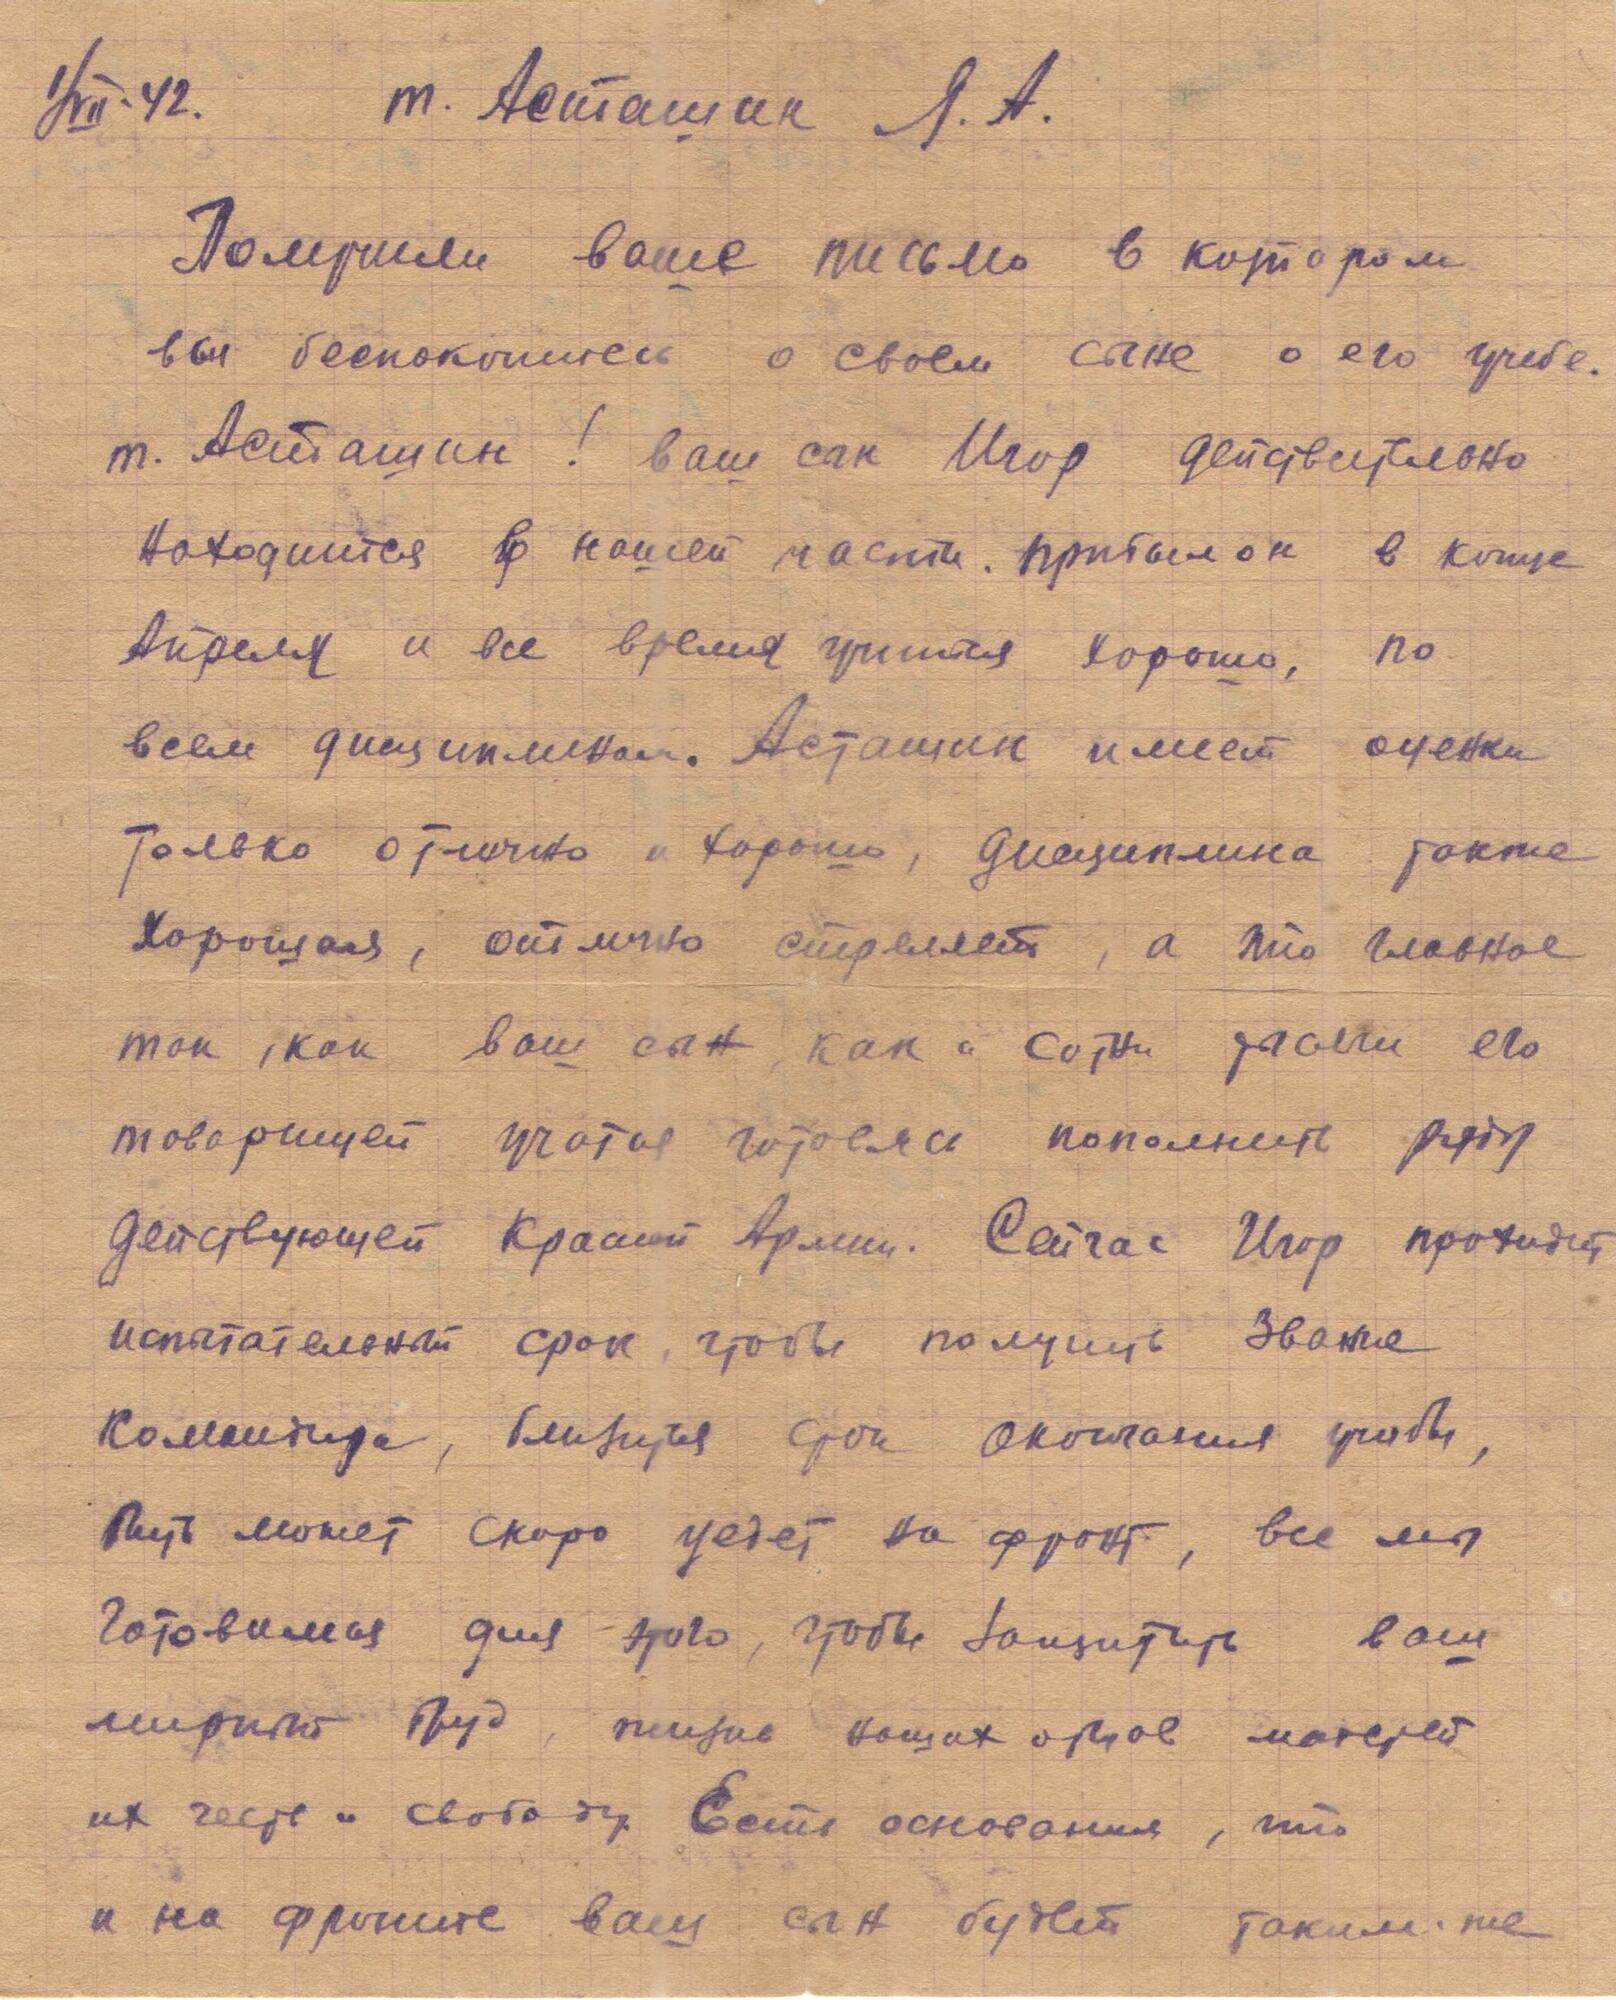 1/VII-42. т. Асташин Я. А.
Получили ваше письмо в котором
вы беспокоитесь о своем сыне о его учебе.
т. Асташин! ваш сын Игор действительно
находится в нашей части. прибыл он в конце
Апреля и все время учится хорошо, по
всем дисциплинам. Асташин имеет оценки
только отлично и хорошо, дисциплина также
хорошая, отлично стреляет, а это главное
так, как ваш сын как и сотни тысячи его
товарищей учатся готовясь пополнить ряды
действующей Красной Армии. Сейчас Игор проходит
испытательный срок, чтобы получить звание
командира, близится срок окончания учебы,
Быть может скоро уедет на фронт, все мы
готовимся для этого, чтобы защитить ваш
мирный труд, жизнь наших отцов матерей
их честь и свободу. Есть основания, что
и на фронте ваш сын будет таким-же